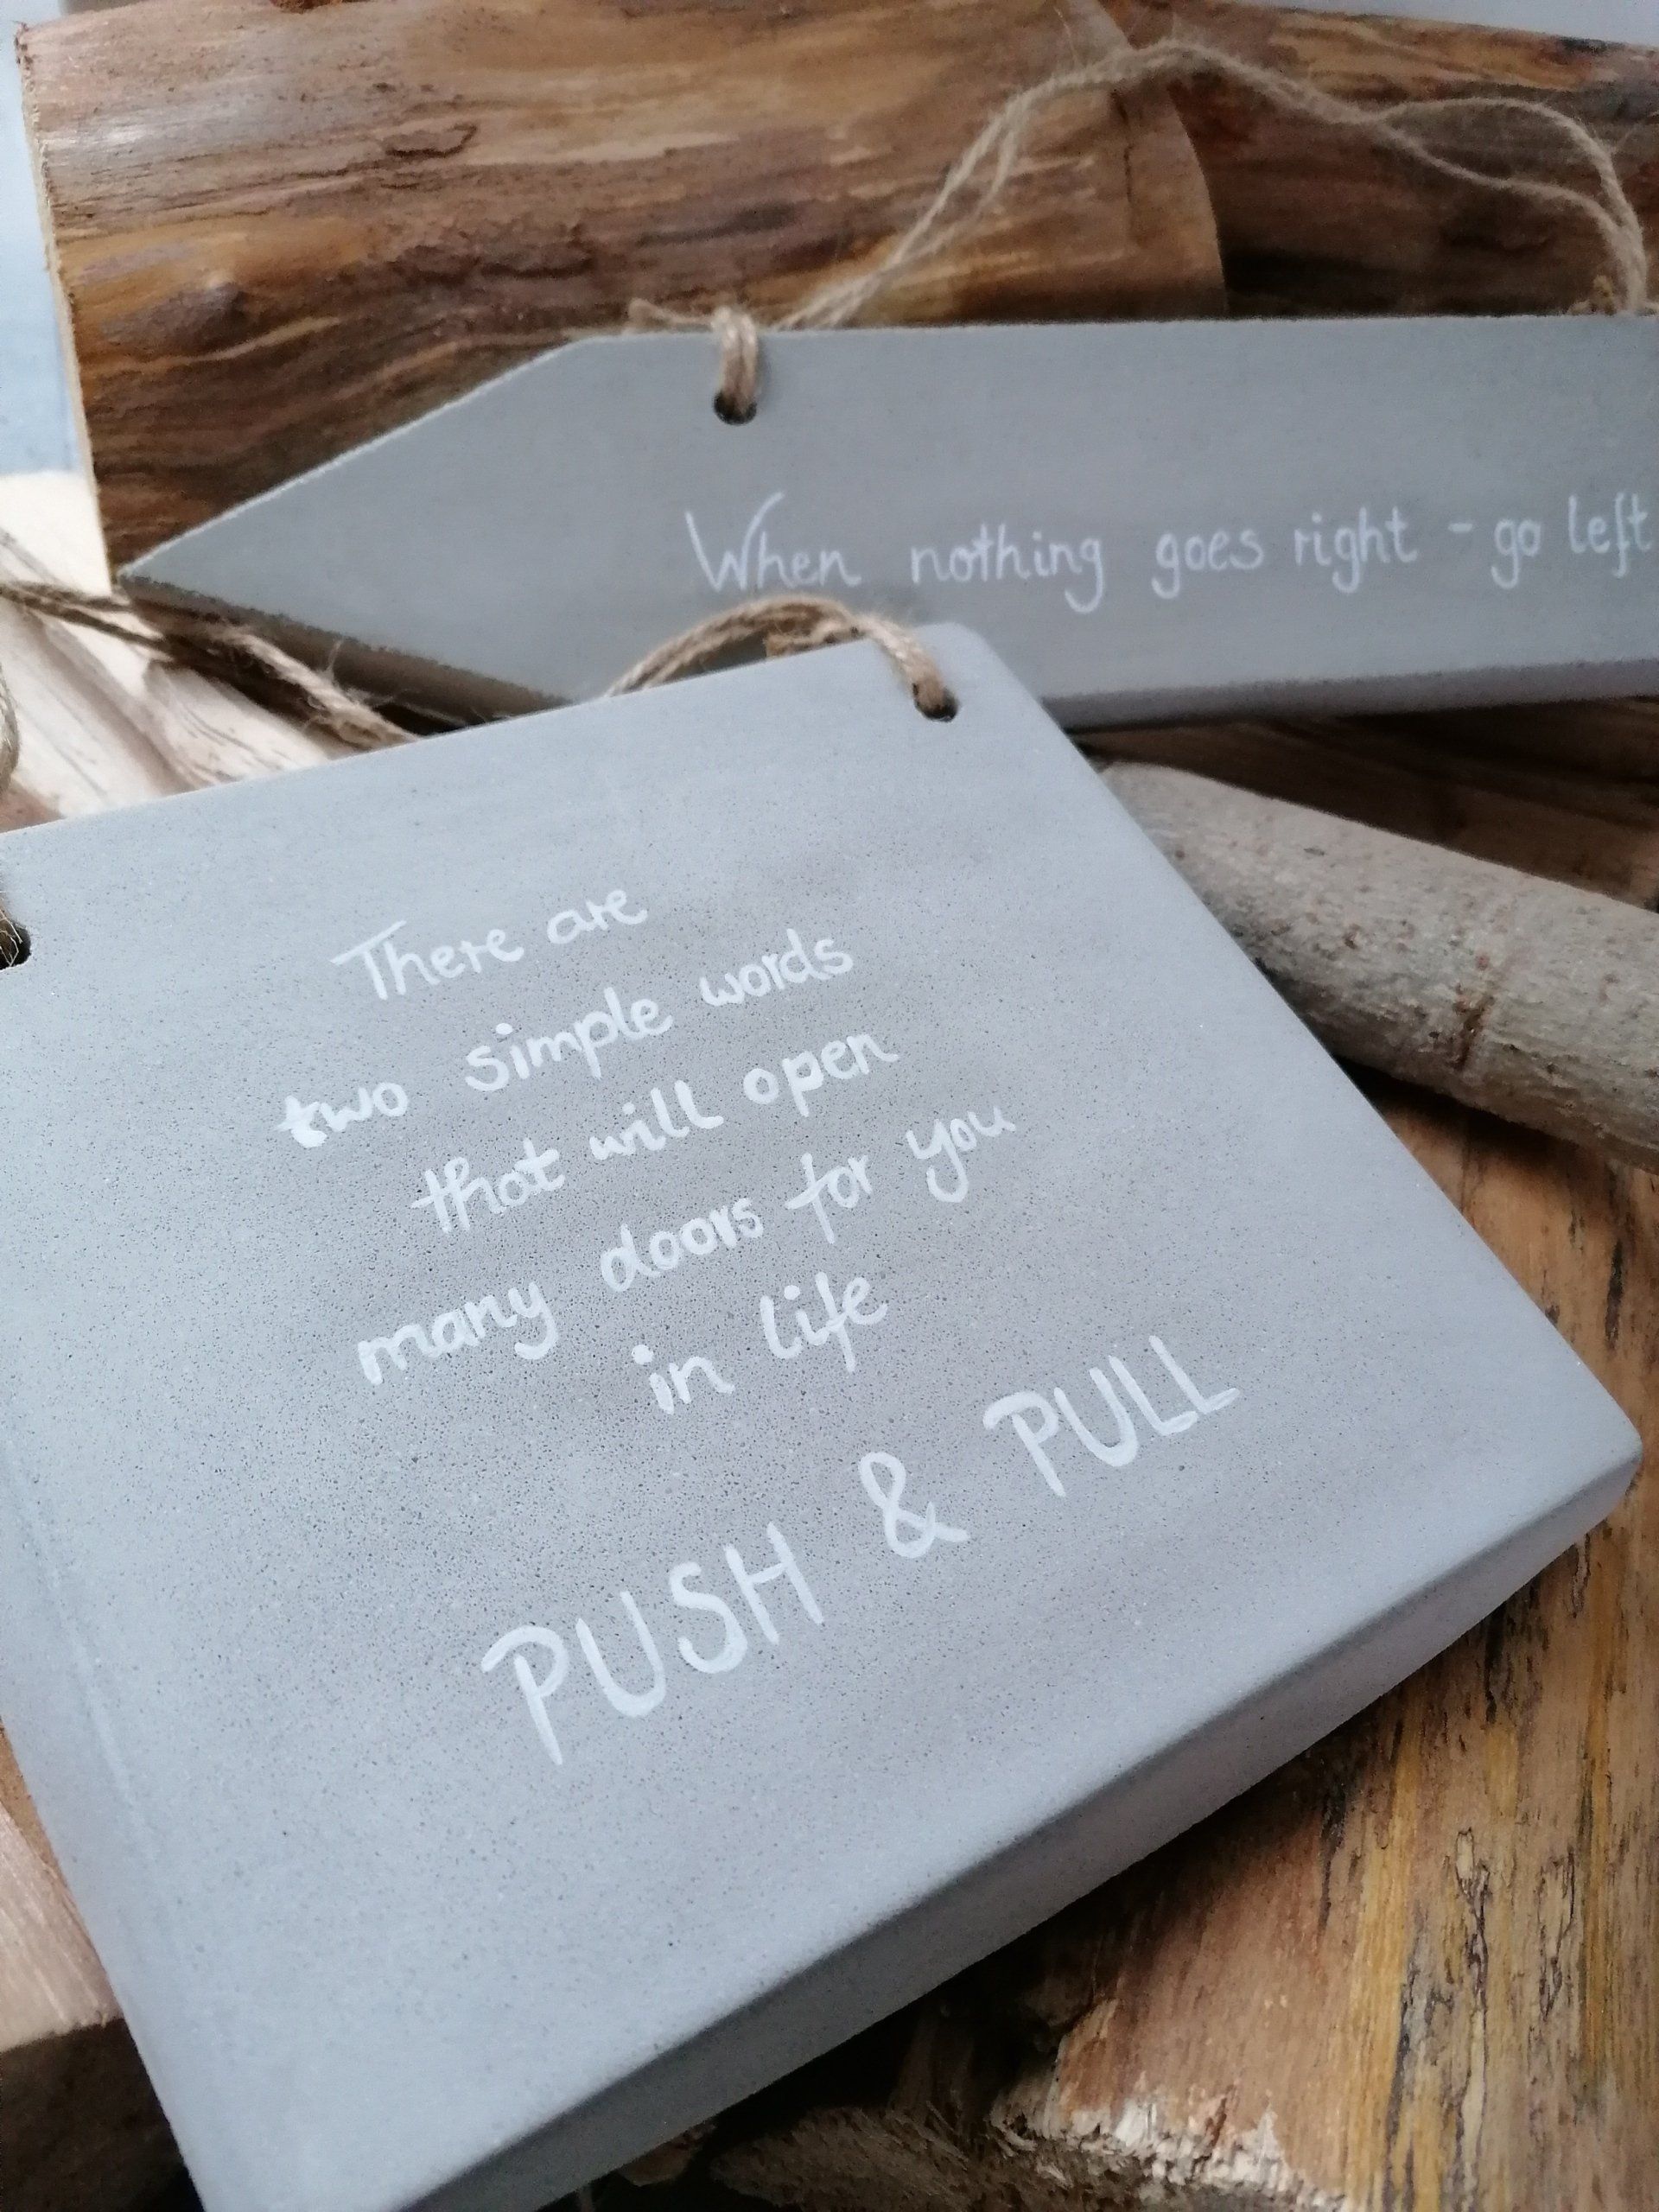 When nothing goes right - go left
There are
two simple words
that will open
many doors for you
in life
PUSH & PULL